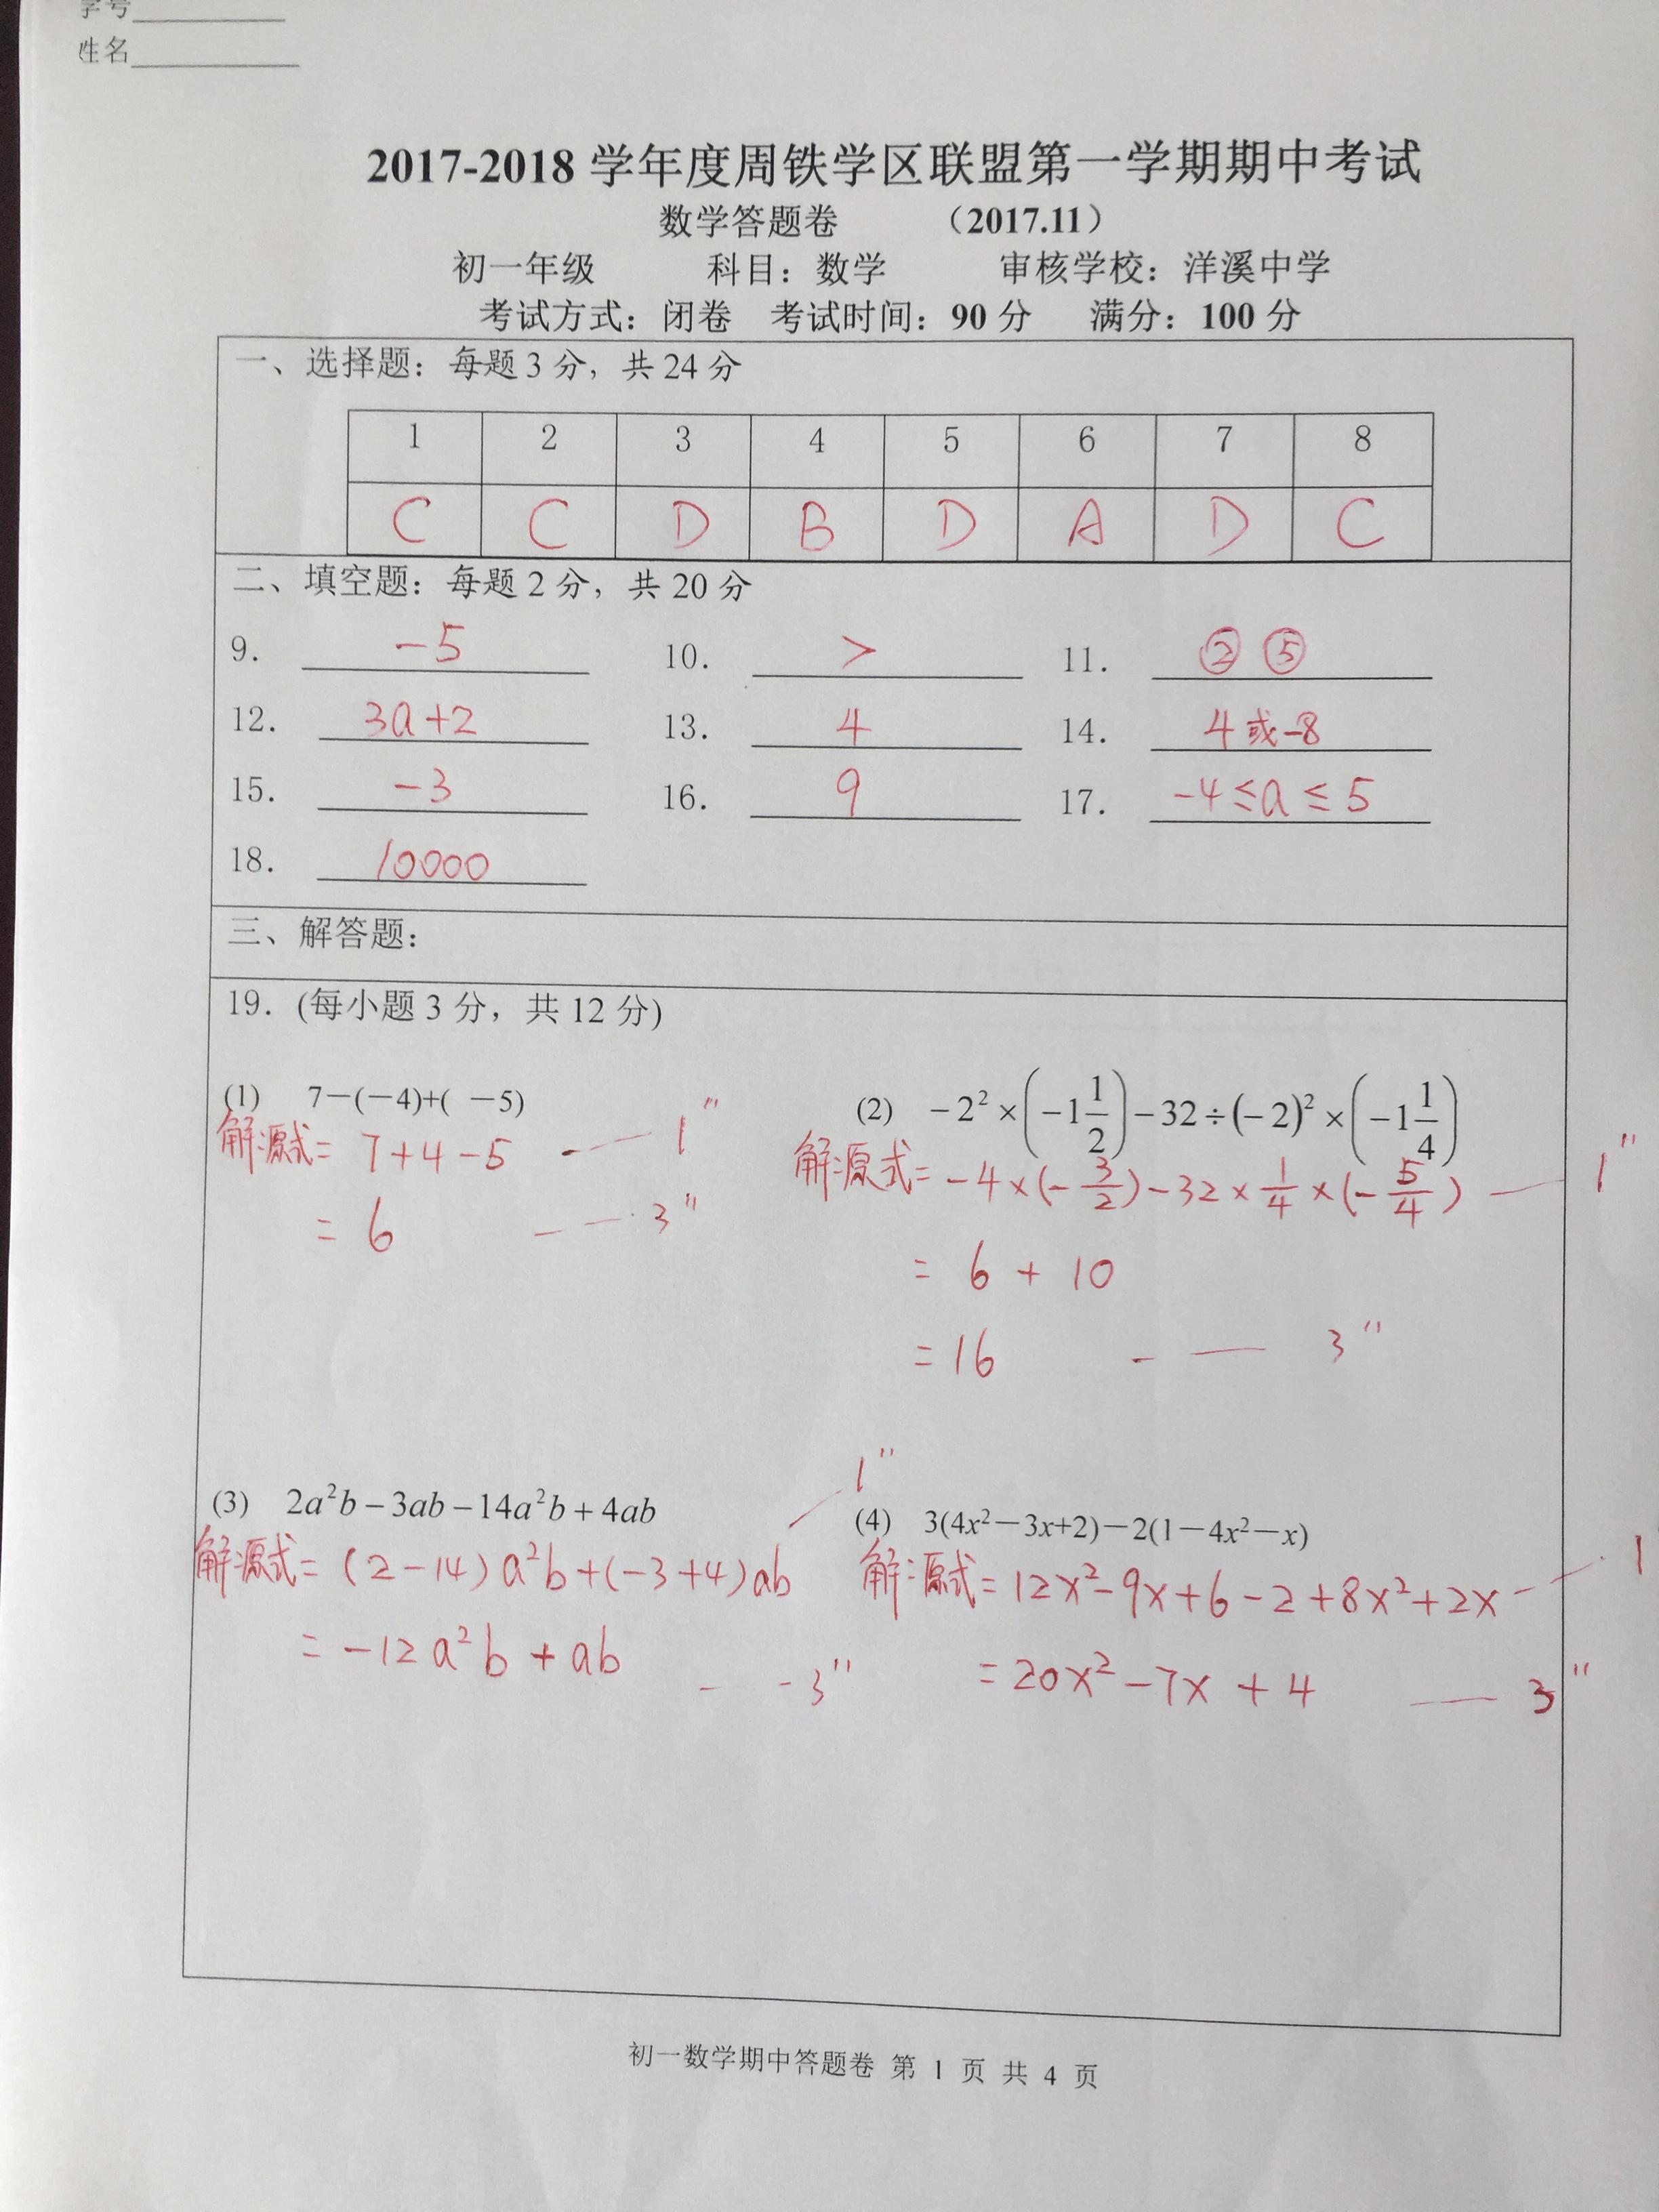 学号
姓名
2017-2018 学年度周铁学区联盟第一学期期中考试
数学答题卷 （2017.11）
初一年级 科目：数学 审核学校：洋溪中学
考试方式：闭卷 考试时间：90 分 满分：100 分
一、选择题：每题 3 分，共 24 分
1 2 3 4 5 6 7 8
C C D B D A D C
二、填空题：每题 2 分，共 20 分
9. -5 10. > 11. ② ⑤
12. 3a+2 13. 4 14. 4或-8
15. -3 16. 9 17. -4≤a≤5
18. 10000
三、解答题：
19. (每小题 3 分，共 12 分)
(1) 7－(－4)+( －5)
解:源式= 7+4-5 —— 1"
= 6 —— 3"
(2) −2²×(−1 1/2)−32÷(−2)²×(−1 1/4)
解:源式= -4×(-3/2)-32×1/4×(-5/4) —— 1"
= 6 + 10
=16 —— 3"
(3) 2a²b−3ab−14a²b+4ab
解:源式= (2-14)a²b+(-3+4)ab —— 1"
= -12a²b+ab —— 3"
(4) 3(4x²－3x+2)－2(1－4x²－x)
解:源式=12x²-9x+6-2+8x²+2x —— 1
=20x²-7x+4 —— 3"
初一数学期中答题卷 第 1 页 共 4 页